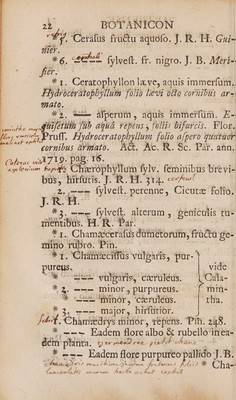 22 BOTANICON
* 5. Cerasus fructu aquoso. J. R. H. Gui-
nier.
* 6. --- sylvest. fr. nigro. J. B. Meri-
sier.
* 1. Ceratophyllon læve, aquis immersum.
Hydroceratophyllum folio lævi octo cornibus ar-
mato.
* 2. --- asperum, aquis immersum. E-
quisetum sub aqua repens, foliis bifurcis. Flor.
Pruss. Hydroceratophyllum folio aspero quatuor
cornibus armato. Act. Ac. R. Sc. Par. ann.
1719. pag. 16.
* 1. Chærophyllum sylv. seminibus brevi-
bus, hirsutis. J. R. H. 314.
2. --- sylvest. perenne, Cicutæ folio.
J. R. H.
* 3. --- sylvest. alterum, geniculis tu-
mentibus. H. R. Par.
* 1. Chamæcerasus dumetorum, fructu ge-
mino rubro. Pin.
* 1. Chamæcissus vulgaris, pur-
pureus.
--- vulgaris, cæruleus.
* 2. --- minor, purpureus.
--- minor, cæruleus.
* 3. --- major, hirsutior.
vide
Cala-
min-
tha.
* 1. Chamædrys minor, repens. Pin. 248.
--- Eadem flore albo & rubello in ea-
dem planta.
--- Eadem flore purpureo pallido J. B.
* Cha-